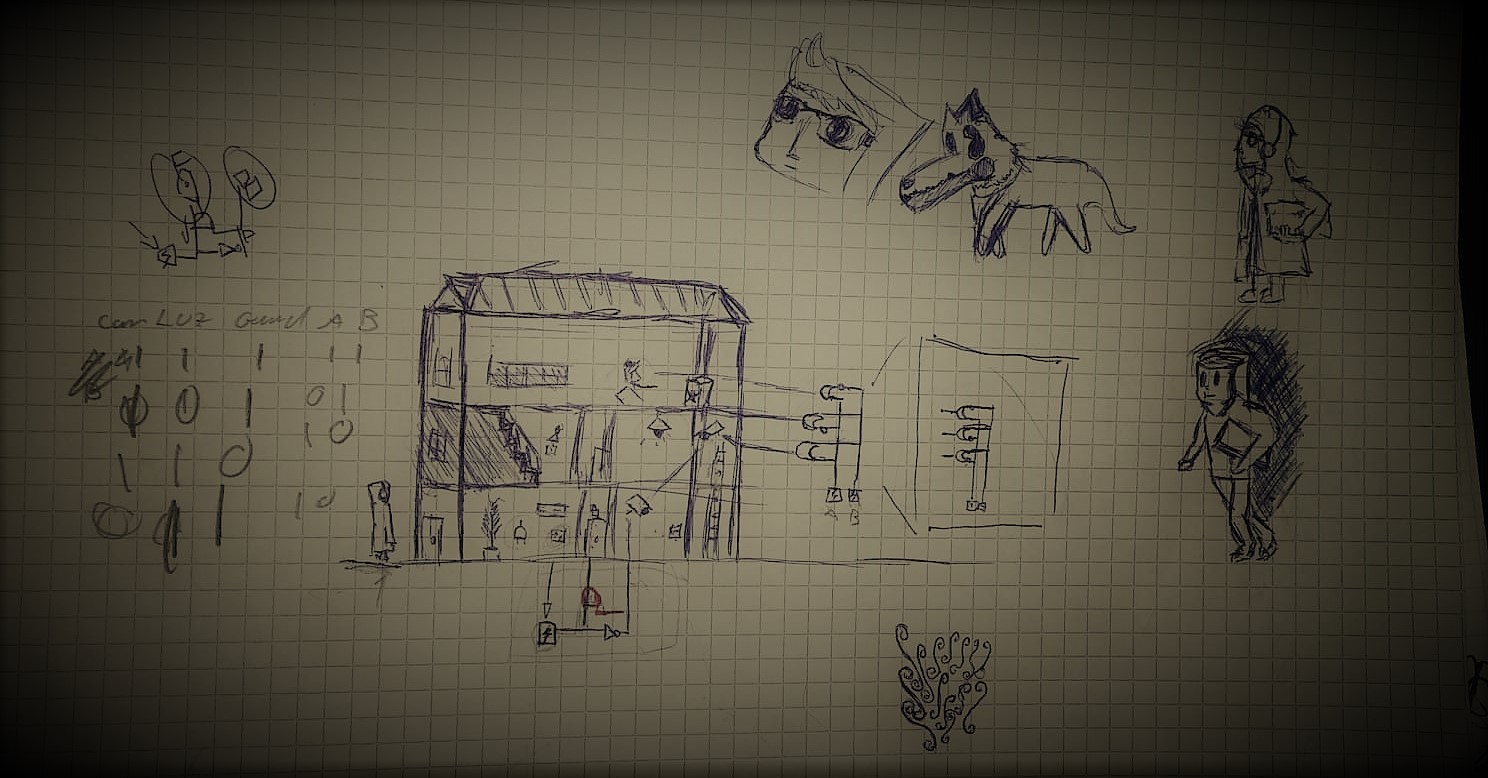 Cam LUZ Guard A B
1 1 1 1 1
0 0 1 0 1
1 0
1 1 0
0 1 1 0
A B